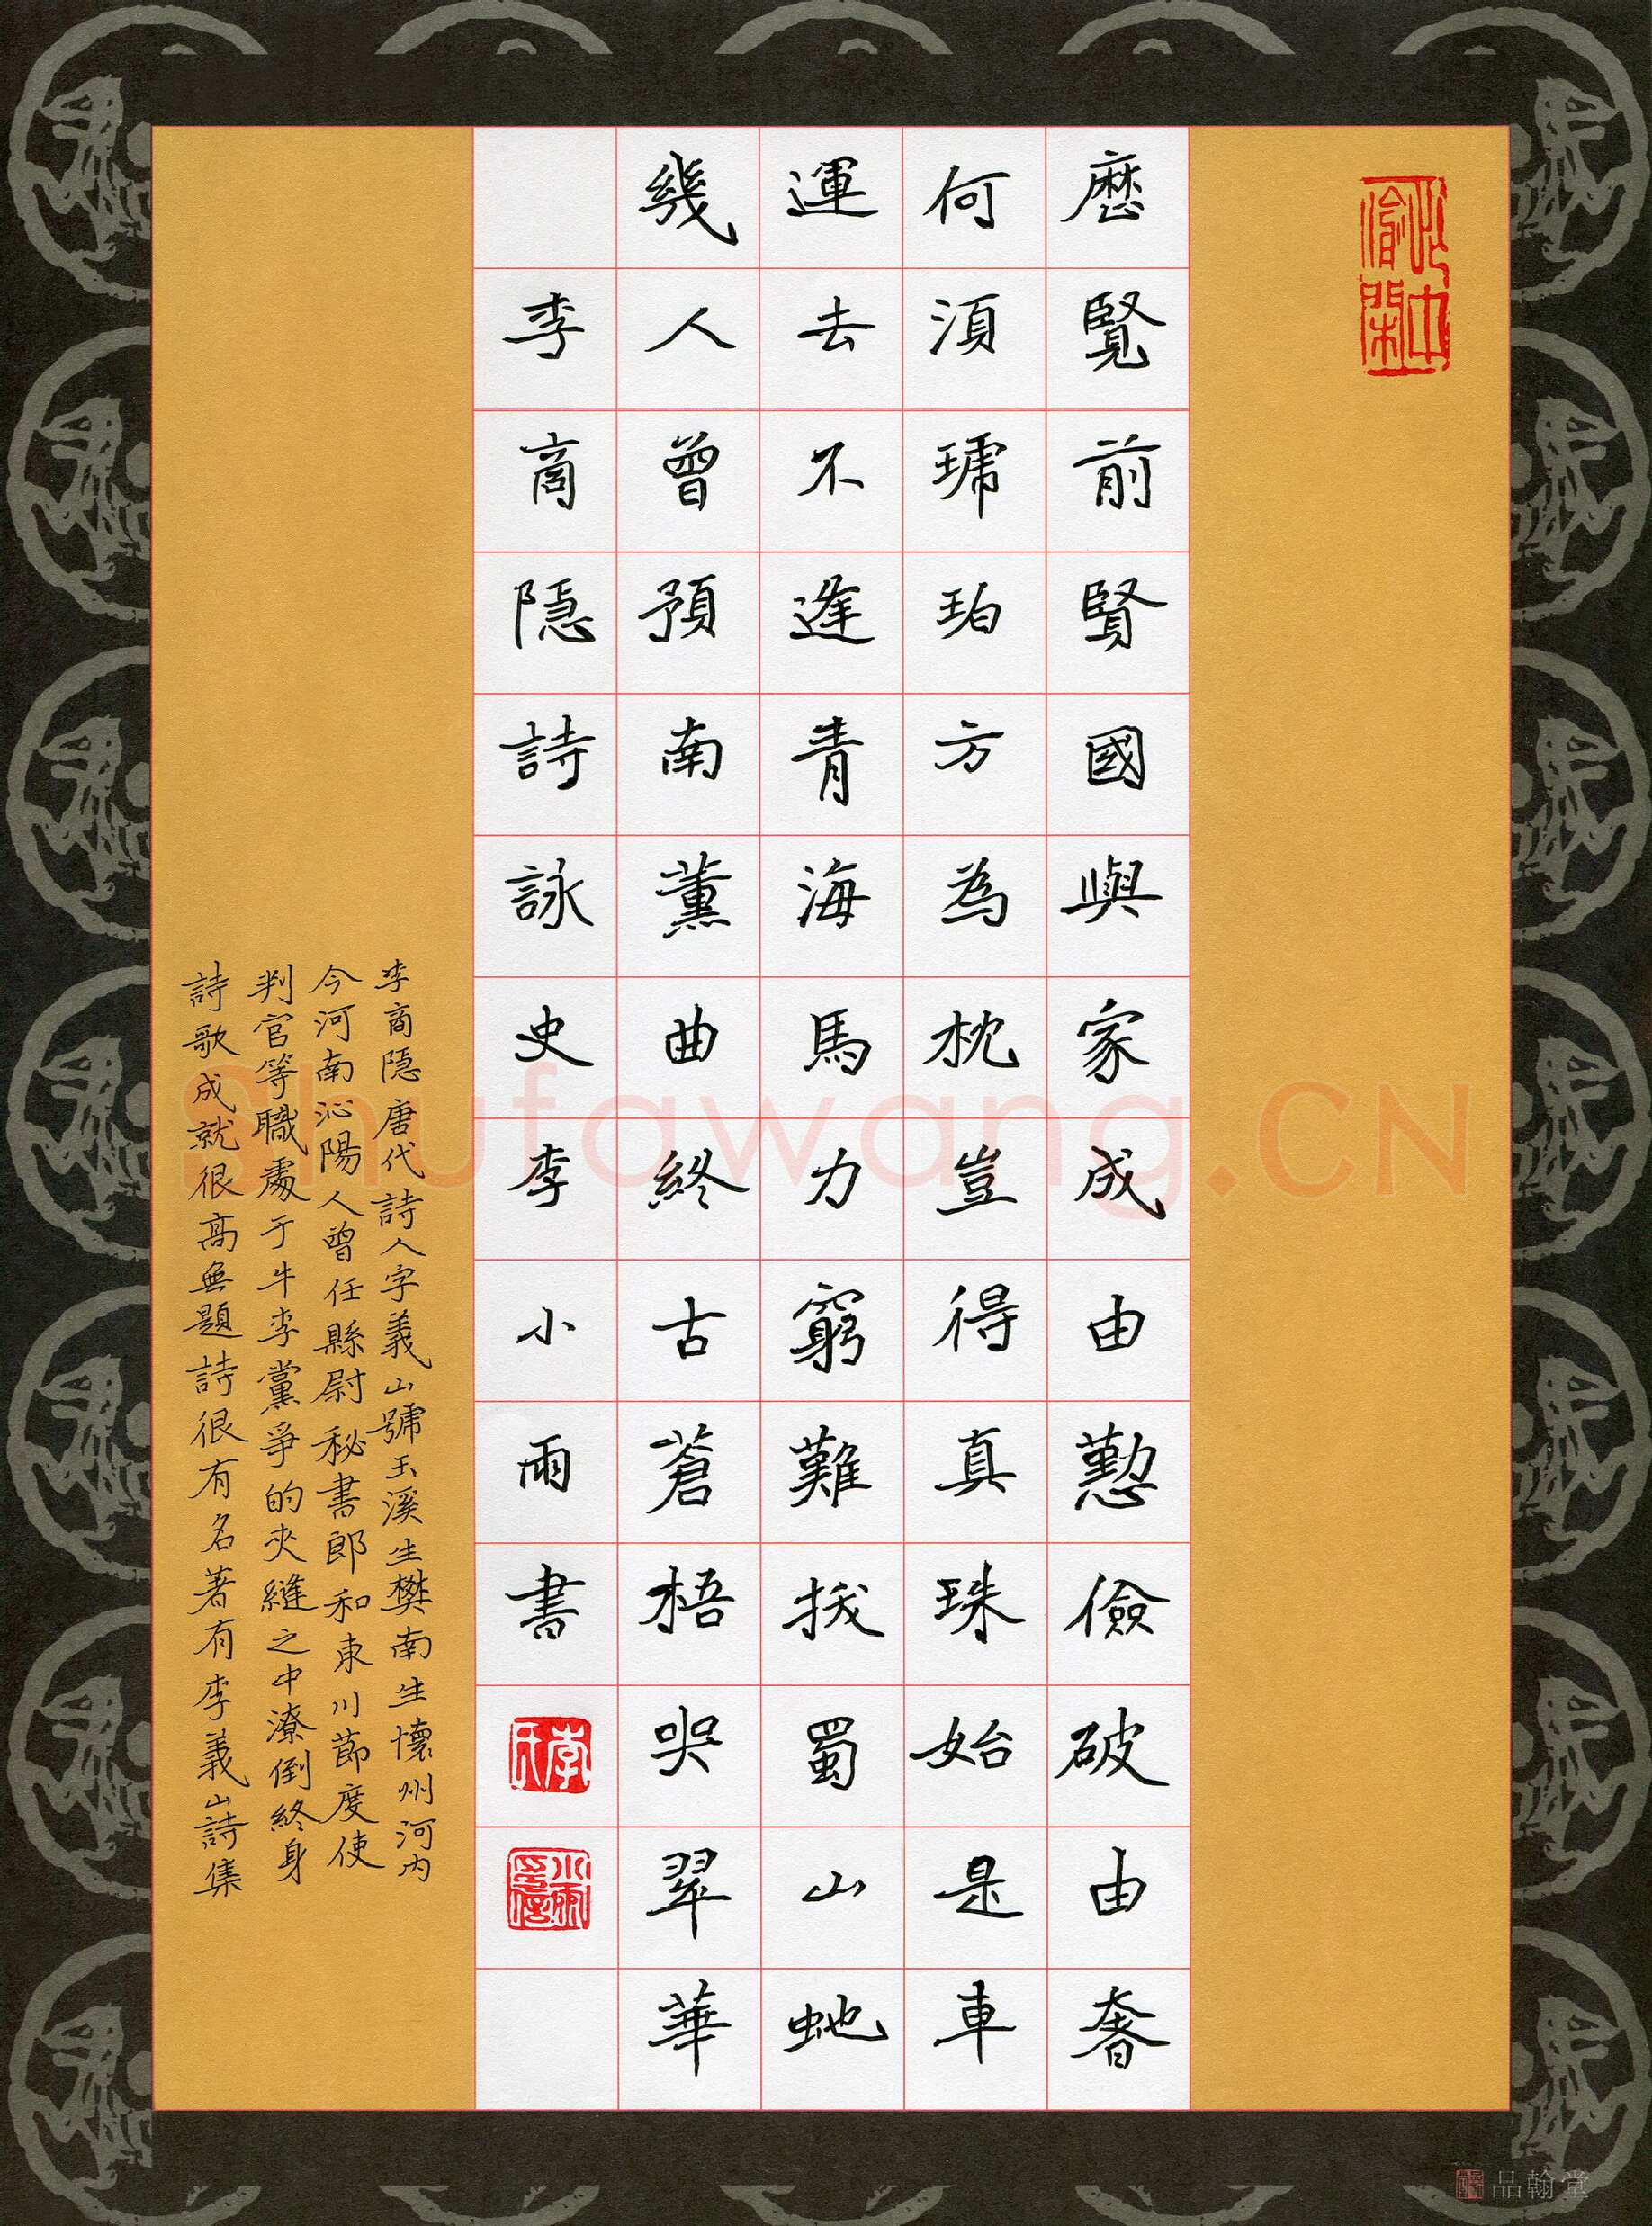 此中偷閑
歷覽前賢國與家成由懃儉破由奢
何湏琥珀方為枕豈得真珠始是車
運去不逢青海馬力窮難拔蜀山虵
幾人曾預南薰曲終古蒼梧哭翠華
李商隱詩詠史李小雨書
李氏
小雨印信
李商隱唐代詩人字義山號玉溪生樊南生懷州河内
今河南沁陽人曾任縣尉秘書郎和東川節度使
判官等職處于牛李黨爭的夾縫之中潦倒終身
詩歌成就很高無題詩很有名著有李義山詩集
Shufawang.CN
品翰堂